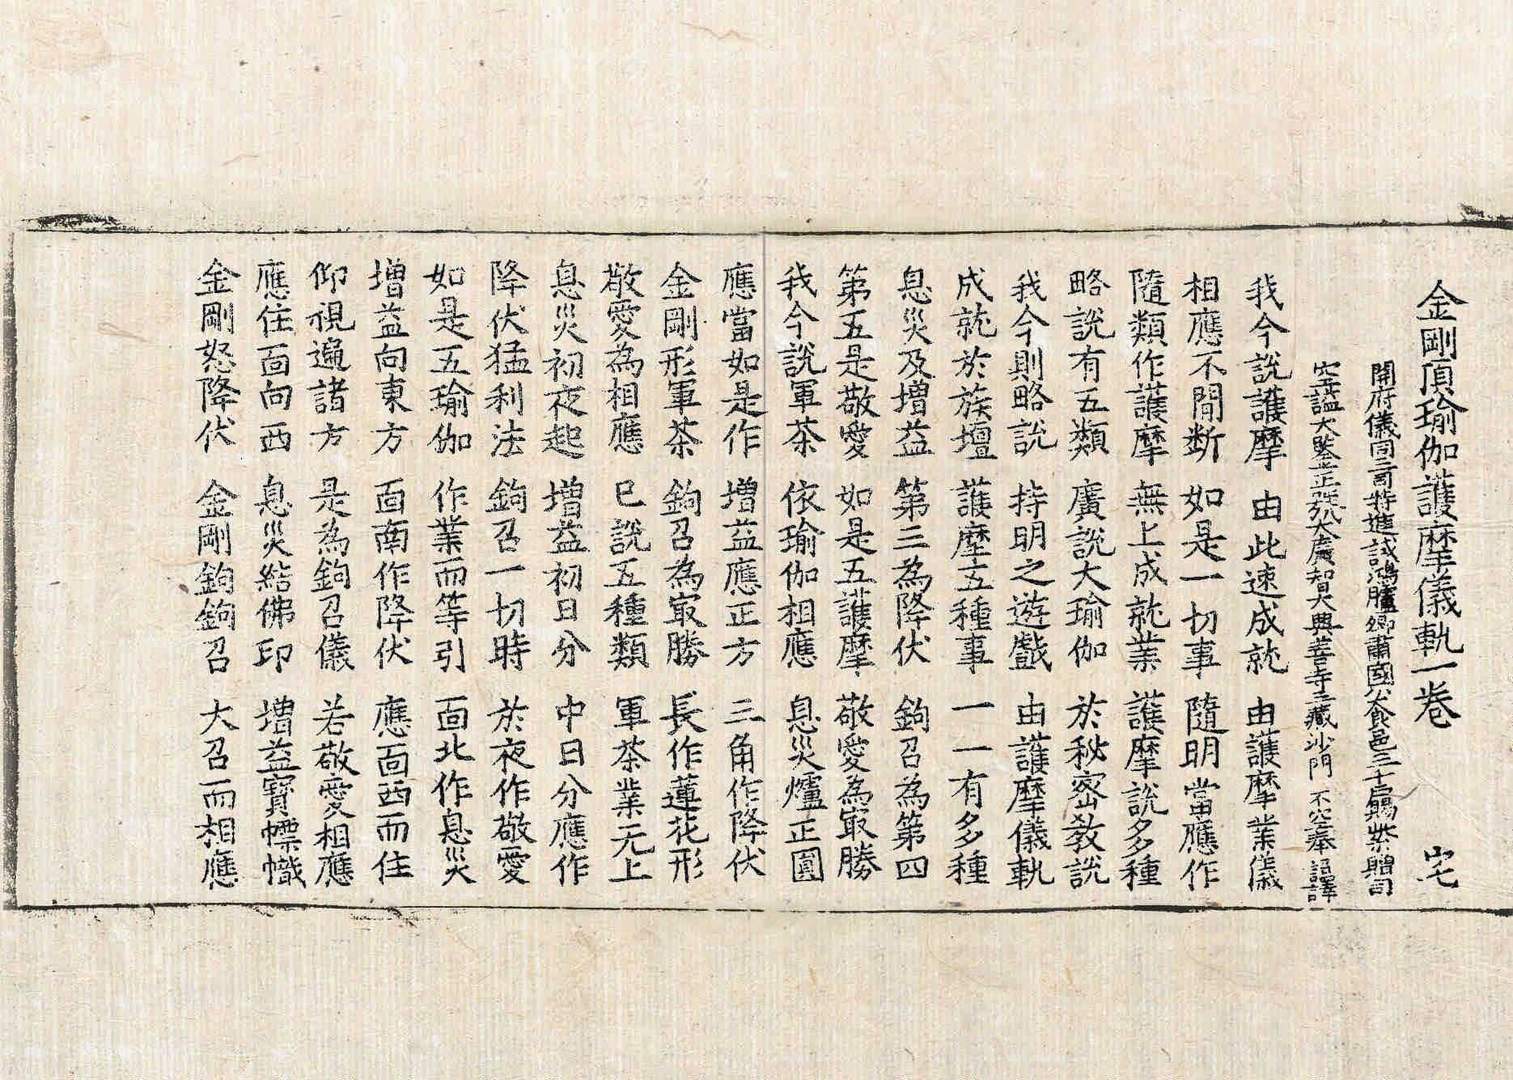 金剛頂瑜伽護摩儀軌一卷 宅
開府儀同三司特進試鴻臚卿肅國公食邑三千戶賜紫贈司
空謚大鑒正號大廣智大興善寺三藏沙門 不空奉 詔譯
我今說護摩 由此速成就 由護摩業儀
相應不間斷 如是一切事 隨明當應作
隨類作護摩 無上成就業 護摩說多種
略說有五類 廣說大瑜伽 於秘密教說
我今則略說 持明之遊戲 由護摩儀軌
成就於族壇 護摩五種事 一一有多種
息災及增益 第三為降伏 鉤召為第四
第五是敬愛 如是五護摩 敬愛為㝡勝
我今說軍荼 依瑜伽相應 息災爐正圓
應當如是作 增益應正方 三角作降伏
金剛形軍荼 鉤召為㝡勝 長作蓮花形
敬愛為相應 已說五種類 軍荼業无上
息災初夜起 增益初日分 中日分應作
降伏猛利法 鉤召一切時 於夜作敬愛
如是五瑜伽 作業而等引 面北作息災
增益向東方 面南作降伏 應面西而住
仰視遍諸方 是為鉤召儀 若敬愛相應
應住面向西 息災結佛印 增益寶幖幟
金剛怒降伏 金剛鉤鉤召 大召而相應